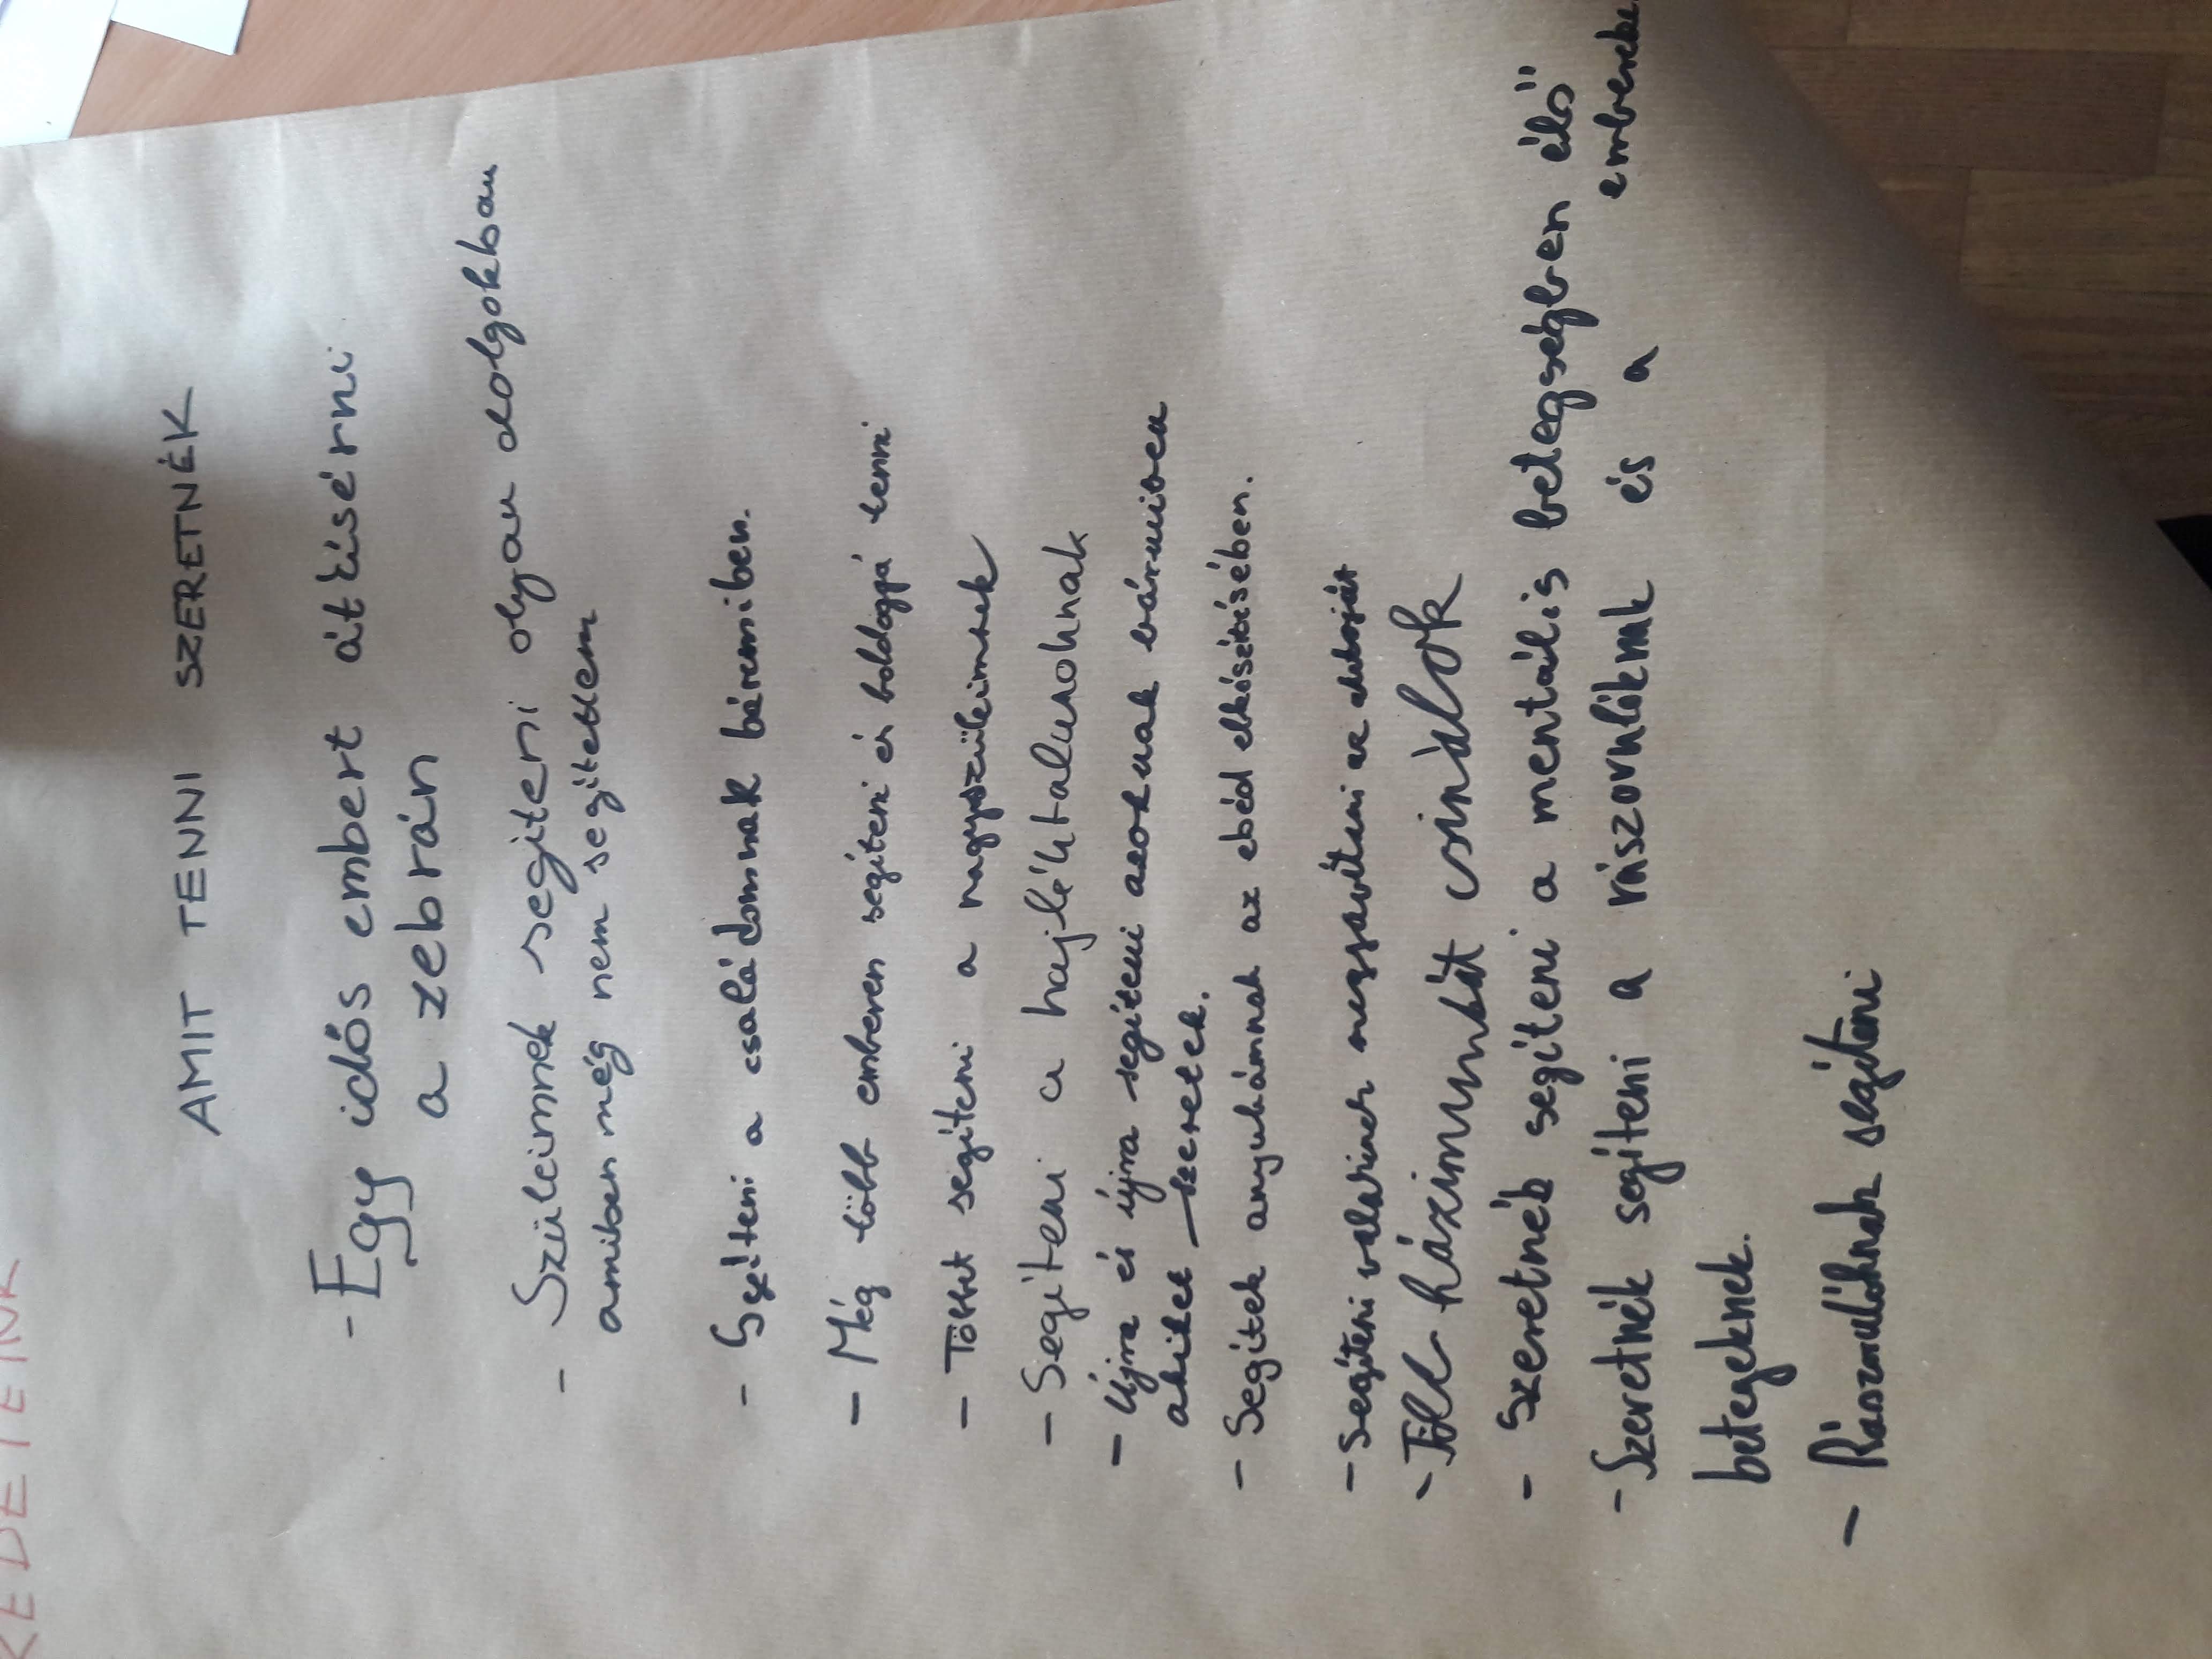 AMIT TENNI SZERETNÉK
- Egy idős embert átkísérni
a zebrán
- Szüleimnek segíteni olyan dolgokban
amiben még nem segítettem
- Segíteni a családomnak bármiben.
- Még több emberen segíteni és boldoggá tenni
- Többet segíteni a nagyszüleimnek
- Segíteni a hajléktalanoknak
- Újra és újra segíteni azoknak bármiben
akiket szeretek.
- Segítek anyukámnak az ebéd elkészítésében.
- Segíteni valakinek megjavítani az
- Több házimunkát csinálok
- Szeretnék segíteni a mentális betegségben élő
embereke
- Szeretnék segíteni a rászorulóknak és a
betegeknek.
- Rászorulóknak segíteni